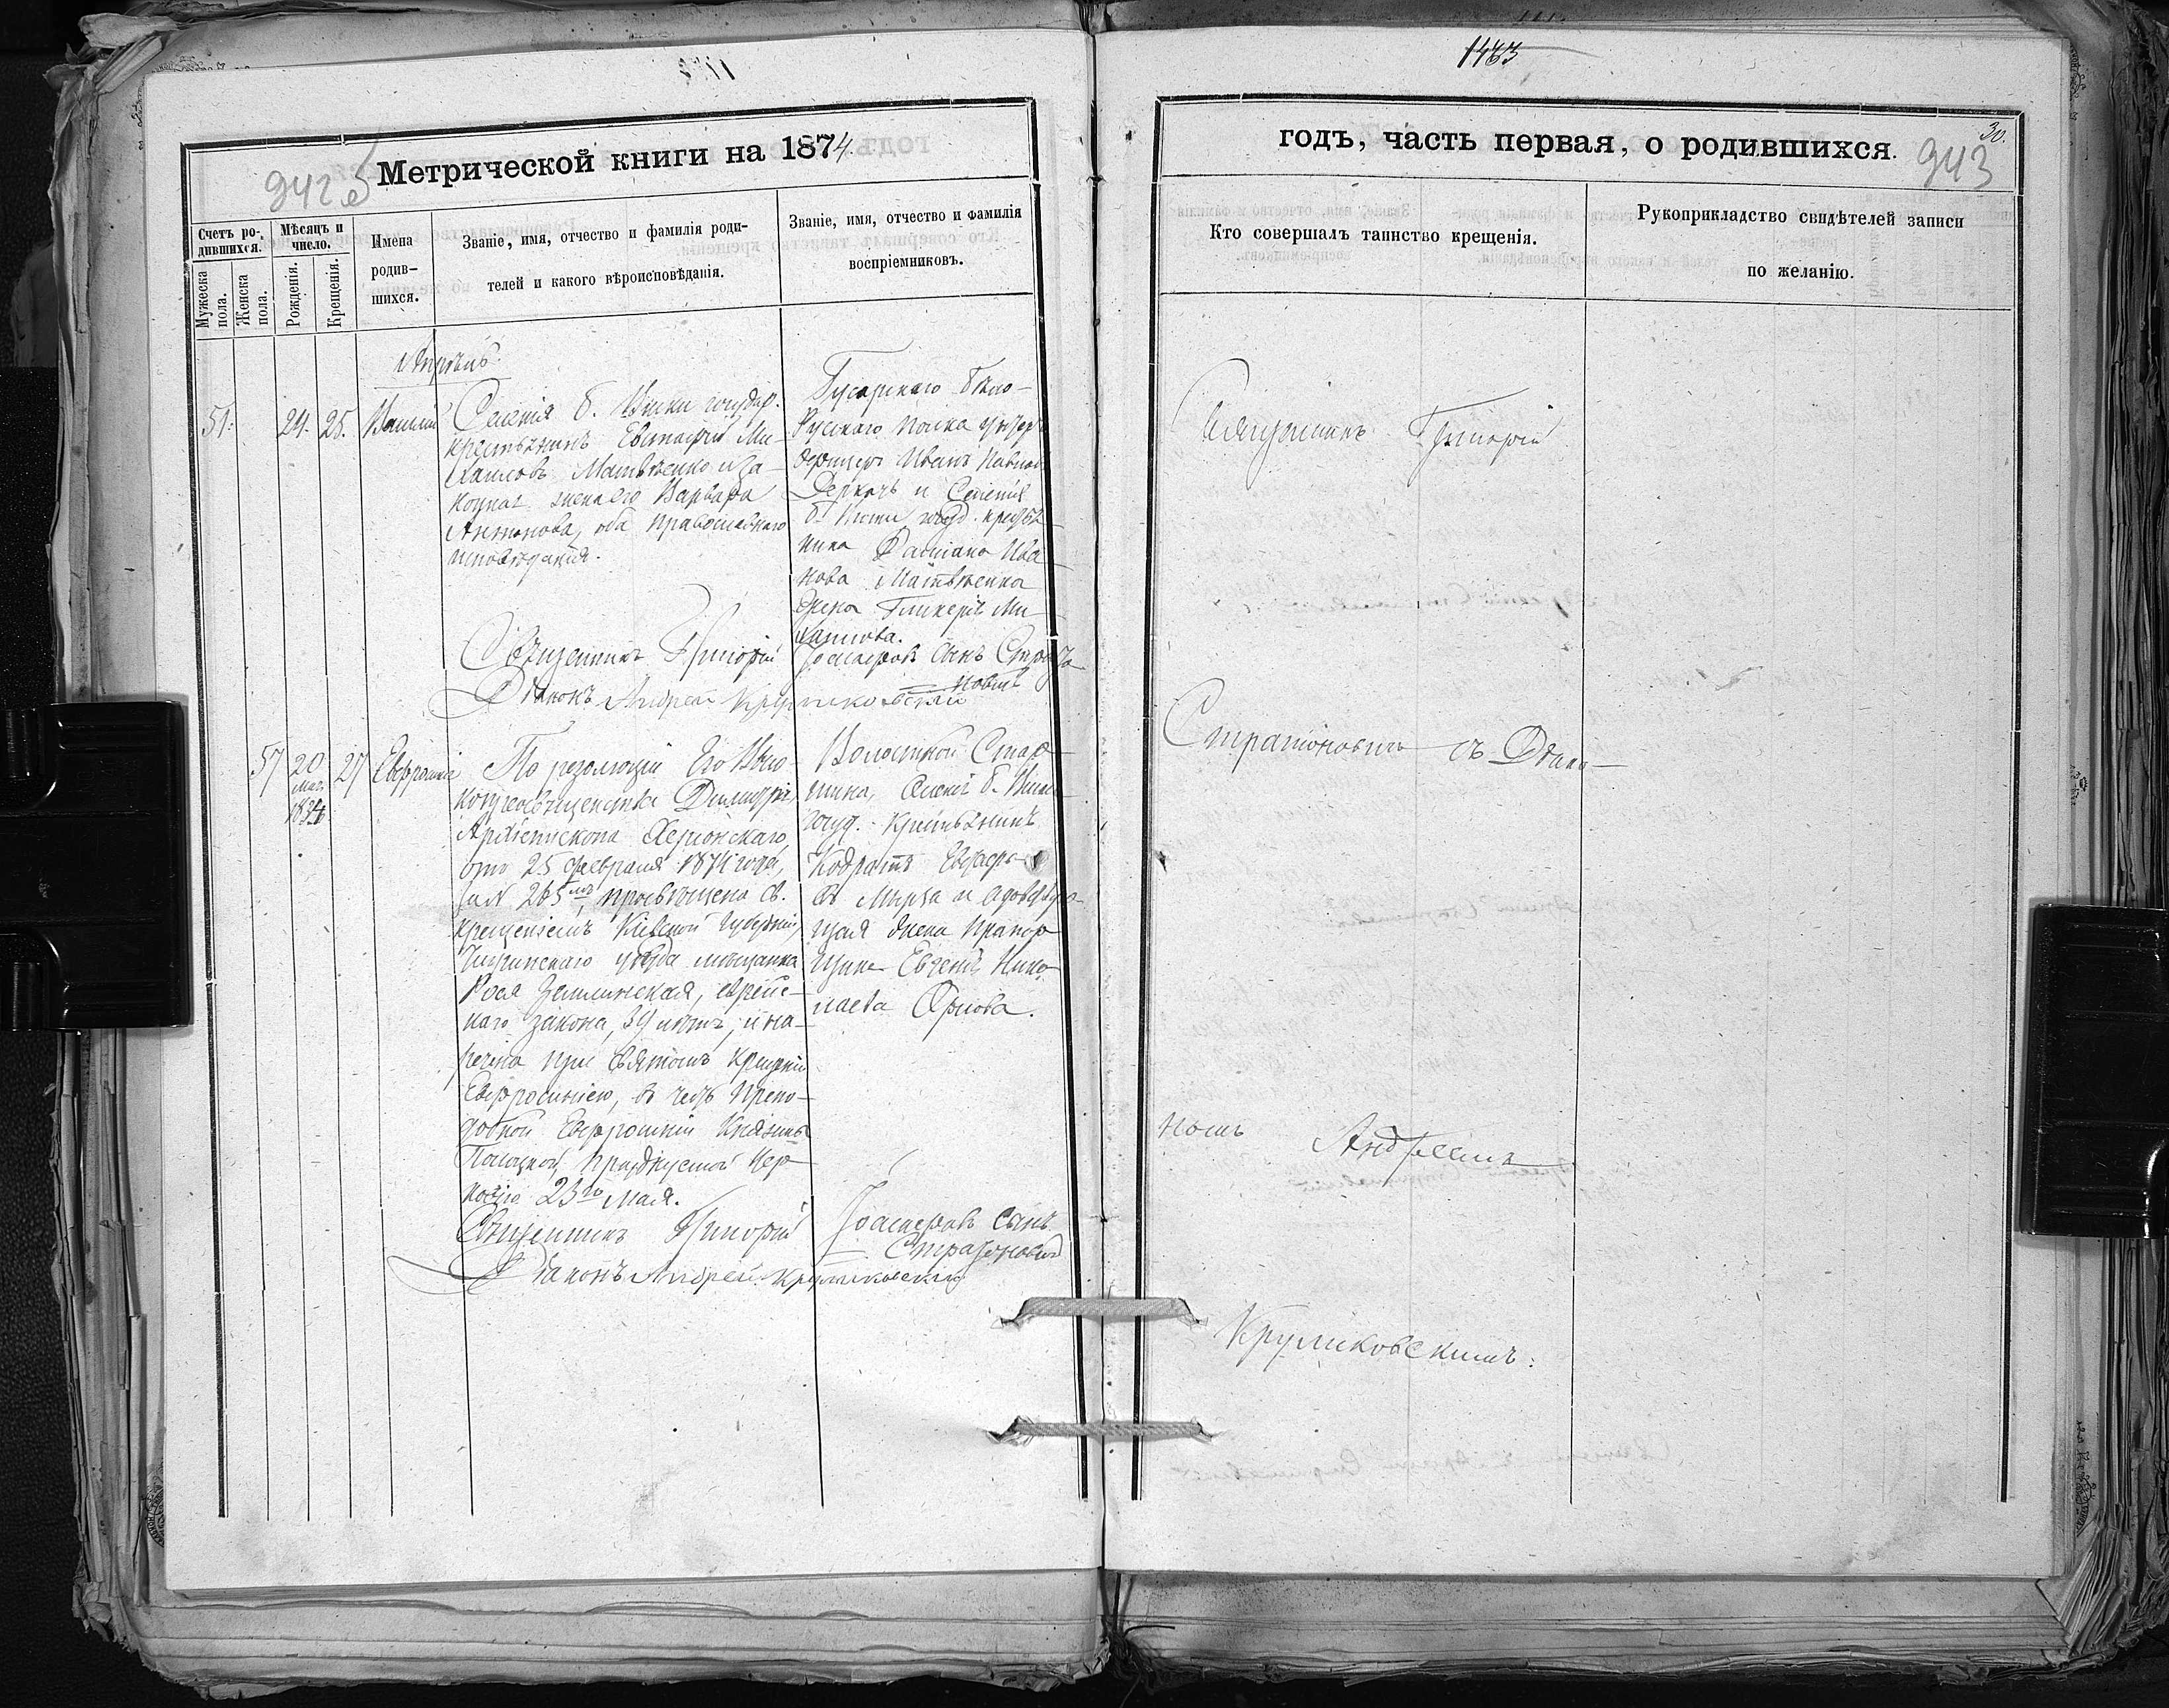 1463
Метрической книги на 1874.
942 об
Счетъ ро-
дившихся.
Мѣсяцъ и
число.
Мужеска
пола.
Женска
пола.
Рожденія.
Крещенія.
Имена
родив-
шихся.
Званіе, имя, отчество и фамилія роди-
телей и какого вѣроисповѣданія.
Званіе, имя, отчество и фамилія
воспріемниковъ.
Апрѣль.
51.
24. 25.
Василій
Селенія Б. Виски государ.
крестьянинъ Евстафій Ми-
хаиловъ Матвѣенко и за-
конная жена его Варвара
Антонова, оба православнаго
исповѣданія.
Гусарскаго Бѣло-
Русскаго полка унтер
офицеръ Иванъ Павлов
Деркачъ и Селенія
Б. Виски госуд. крестья
нина Ива
нова Матвѣенка
жена Гликерія Ми-
хаилова.
Священникъ Григорій Іоасафовъ Сынъ Страто
новичъ
Діаконъ Андрей Круликовскій
57
20
Мая
27
Евфросинія
По резолюціи Его Высо-
копреосвященства Димитрія,
Архіепископа Херсонскаго,
отъ 25 февраля 1874 года,
за № 265мъ, просвѣщена св.
крещеніемъ Кіевской губерніи,
Чигринскаго уѣзда мѣщанка
Рося еврейс-
каго закона, 39 лѣтъ, и на-
речена при святомъ крещеніи
Евфросиніею, въ честь Препо-
добной Евфросиніи Княжны
Полоцкой, празднуемой Цер-
ковію 23го Мая.
Волостной Стар
шина, Селенія Б. Виски
госуд. крестьянинъ
Кодратъ
въ Мирза и
жена Прапор
щика Евгенія Нико-
лаева Орлова.
Священникъ Григорій Іоасафовъ сынъ
Стратоновичъ
Діаконъ Андрей Круликовскій
годъ, часть первая, о родившихся.
30.
943
Кто совершалъ таинство крещенія.
Рукоприкладство свидѣтелей записи
по желанію.
Священникъ Григорій
Стратоновичъ съ Діако-
номъ Андреемъ
Круликовскимъ.